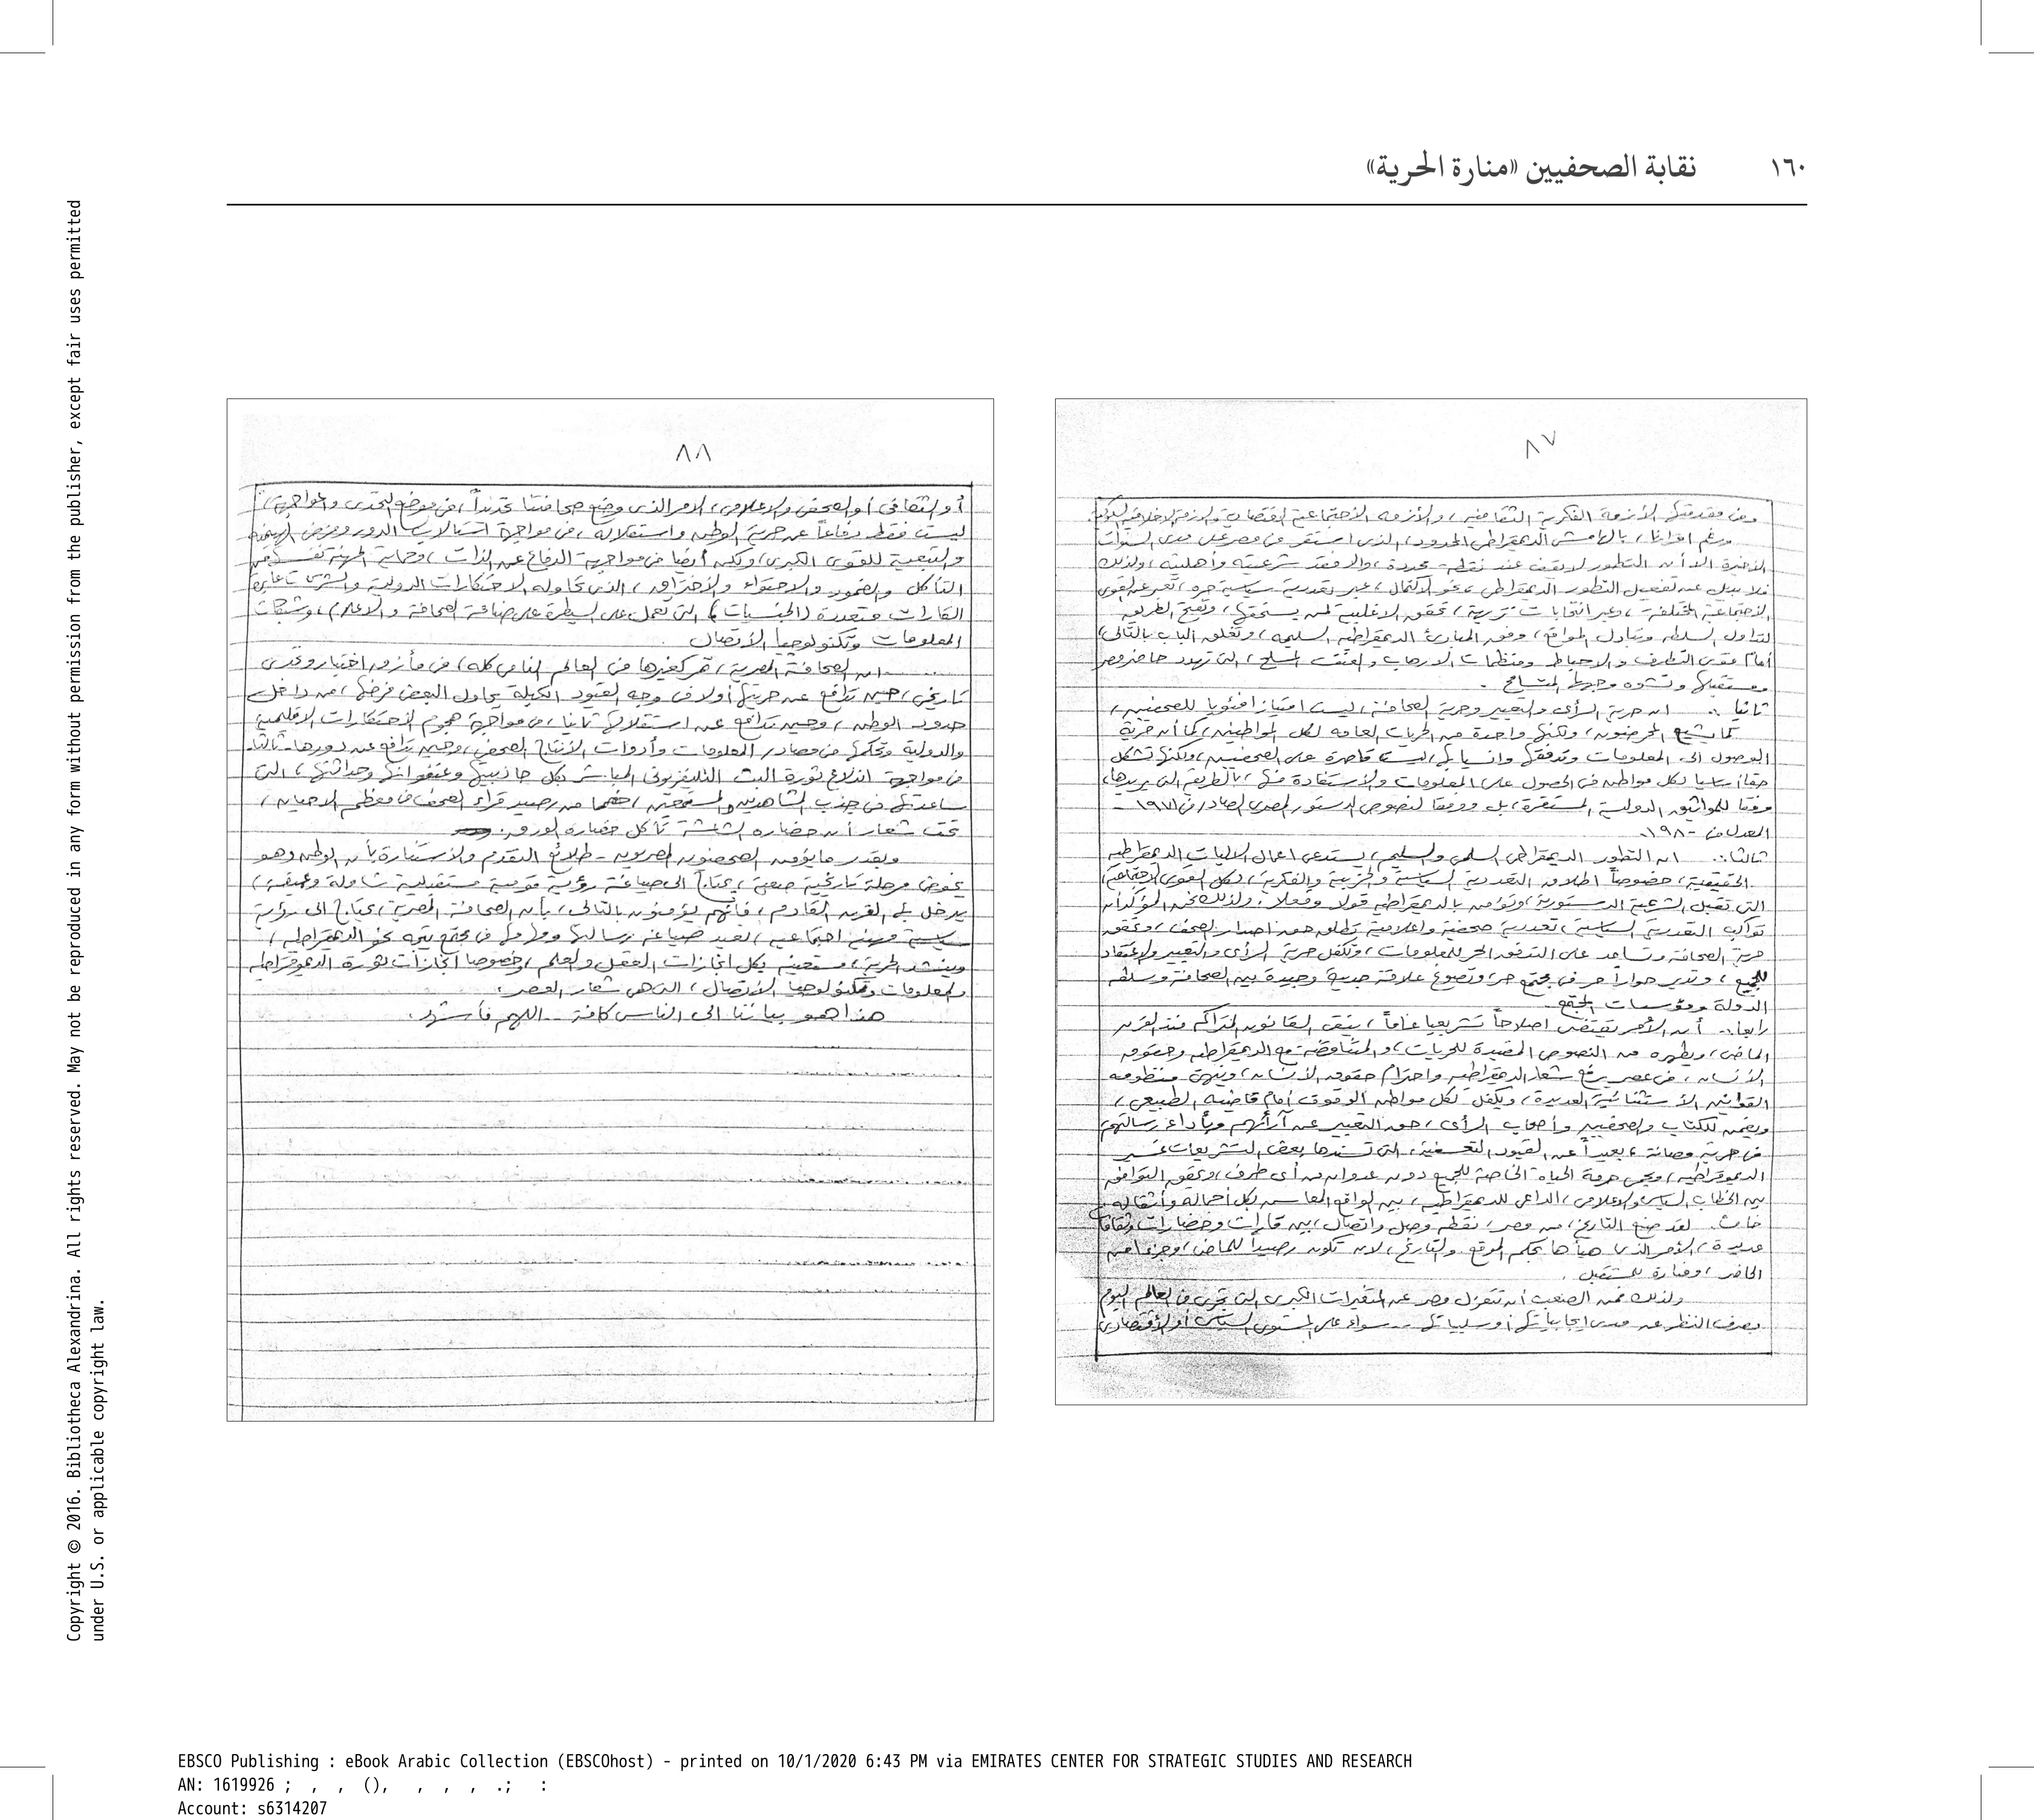 ١٦٠ نقابة الصحفيين «منارة الحرية»
٨٧
وفى مقدمتها الأزمة الفكرية الثقافية، والأزمة الاجتماعية الاقتصادية والأزمة الاخلاقية
ورغم اقرارنا، بالهامش الديمقراطى المحدود، الذى استقر فى مصر على مدى السنوات
الأخيرة، الا أن التطور لا يقف عند نقطة محددة، والا فقد شرعيته وأهليته، ولذلك
فلا بديل عن تفعيل التطور الديمقراطى، نحو الاكتمال، عبر تعددية سياسية حرة، تعبر عن القوى
الاجتماعية المختلفة، وعبر انتخابات نزيهة، تحقق الاغلبية لمن يستحقها، وتفتح الطريق
لتداول السلطة وتبادل المواقع، وفق المبادئ الديمقراطية السليمة، وتغلق الباب بالتالى،
أمام قوى التطرف والاحباط ومنظمات الارهاب والعنف المسلح، التى تهدد حاضر مصر
ومستقبلها وتشوه وجهها المتسامح .
ثانيا .. ان حرية الرأى والتعبير وحرية الصحافة، ليست امتيازا فئويا للصحفيين،
كما يشيع المغرضون، ولكنها واحدة من الحريات العامة لكل المواطنين، كما أن حرية
الوصول الى المعلومات وتدفقها وانسيابها، ليست قاصرة على الصحفيين، ولكنها تشكل
حقا أساسيا لكل مواطن فى الحصول على المعلومات والاستفادة منها، بالطريقة التى يريدها،
وفقا للمواثيق الدولية المستقرة، بل ووفقا لنصوص الدستور المصرى الصادر فى ١٩٧١ -
المعدل فى ١٩٨٠.
ثالثا .. ان التطور الديمقراطى السلمى والسليم، يستدعى اعمال الاليات الديمقراطية
الحقيقية، خصوصاً اطلاق التعددية السياسية والحزبية والفكرية، لكل القوى الاجتماعية
التى تقبل الشرعية الدستورية، وتؤمن بالديمقراطية قولا وفعلا. ولذلك نحن المؤكد أن
تواكب التعددية السياسية، تعددية صحفية واعلامية تطلق حق اصدار الصحف، وتحقق
حرية الصحافة وتساعد على التدفق الحر للمعلومات، وتكفل حرية الرأى والتعبير والاعتقاد
للجميع، وتدير حواراً حر فى مجتمع حر، وتصوغ علاقة جدية وجيدة بين الصحافة وسلطة
الدولة ومؤسسات المجتمع.
رابعا .. أن الأمر يقتضى اصلاحاً تشريعيا عاماً، ينقى القانون المتراكم منذ القرن
الماضى، ويطهره من النصوص المقيدة للحريات، والمتناقضة مع الديمقراطية وحقوق
الانسان، فى عصر يرفع شعار الديمقراطية واحترام حقوق الانسان، وينهى منظومة
القوانين الاستثنائية العديدة، ويكفل لكل مواطن الوقوف أمام قاضيه الطبيعى،
ويضمن للكتاب والصحفيين وأصحاب الرأى، حق التعبير عن آرائهم وبأداء رسالتهم
فى حرية وصيانة، بعيداً عن القيود التعسفية، التى تسندها بعض التشريعات غير
الديموقراطية، ويحمى حرمة الحياة الخاصة للجميع دون عدوان من أى طرف، ويحقق التوافق
بين الخطاب السياسى والاعلامى، الداعى للديمقراطية، بين الواقع المعاش بكل أحماله وأثقاله.
خامسا. لقد صنع التاريخ، من مصر، نقطة وصل واتصال، بين قارات وحضارات وثقافات
عديدة، الأمر الذى هيأها بحكم الموقع والتاريخ، لان تكون رصيداً للماضى، وجزءا من
الحاضر، ومنارة للمستقبل .
ولذلك فمن الصعب أن تنعزل مصر عن المتغيرات الكبرى التى تجرى فى العالم اليوم
بصرف النظر عن مدى ايجابياتها أو سلبياتها .. سواء على المستوى السياسى أو الاقتصادى
٨٨
أو الثقافى أو الصحفى والاعلامى، الامر الذى وضع صحافتنا تحديداً، فى موضع التحدى والمواجهة،
ليست فقط دفاعاً عن حرية الوطن واستقلاله، فى مواجهة استلاب الدور وفرض الهيمنة
والتبعية للقوى الكبرى، ولكن أيضا فى مواجهة الدفاع عن الذات، وحماية المهنة نفسها من
التآكل والضمور والاحتواء والاختراق، الذى تحاوله الاحتكارات الدولية والشركات عابرة
القارات متعددة (الجنسيات)، التى تعمل على السيطرة على صناعة الصحافة والاعلام، وشبكات
المعلومات وتكنولوجيا الاتصال.
ان الصحافة المصرية، تمر كغيرها فى العالم النامى كله، فى مأزق اختيار وتحدى
تاريخى، حين تدافع عن حريتها أولا فى وجه القيود المكبلة يحاول البعض فرضها، من داخل
حدود الوطن، وحين تدافع عن استقلالها ثانيا، فى مواجهة هجوم الاحتكارات الاقليمية
والدولية وتحكمها فى مصادر المعلومات وأدوات الانتاج الصحفى، وحين تدافع عن دورها ثالثا
فى مواجهة اندلاع ثورة البث التليفزيونى المباشر بكل جاذبيتها وعنفوانها وحداثتها، التى
ساعدتها فى جذب المشاهدين والمستمعين، خصما من رصيد قراء الصحف فى معظم الاحيان،
تحت شعار أن حضارة الشاشة تأكل حضارة الورق.
وبقدر ما يؤمن الصحفيون المصريون - طلائع التقدم والاستنارة بأن الوطن وهو
يخوض مرحلة تاريخية صعبة، يحتاج الى صياغة رؤية قومية مستقبلية شاملة وعميقة،
يدخل بها القرن القادم، فانهم يؤمنون بالتالى، بأن الصحافة المصرية، تحتاج الى رؤية
سياسية مهنية اجتماعية، تعيد صياغة رسالتها ودورها فى مجتمع يتجه نحو الديمقراطية،
وينشد الحرية، مستعين بكل انجازات العقل والعلم، وخصوصا انجازات ثورة الديموقراطية
والمعلومات وتكنولوجيا الاتصال، التى هى شعار العصر.
هذا هو بياننا الى الناس كافة .. اللهم فأشهد.
Copyright © 2016. Bibliotheca Alexandrina. All rights reserved. May not be reproduced in any form without permission from the publisher, except fair uses permitted
under U.S. or applicable copyright law.
EBSCO Publishing : eBook Arabic Collection (EBSCOhost) - printed on 10/1/2020 6:43 PM via EMIRATES CENTER FOR STRATEGIC STUDIES AND RESEARCH
AN: 1619926 ; , , (), , , , .; :
Account: s6314207